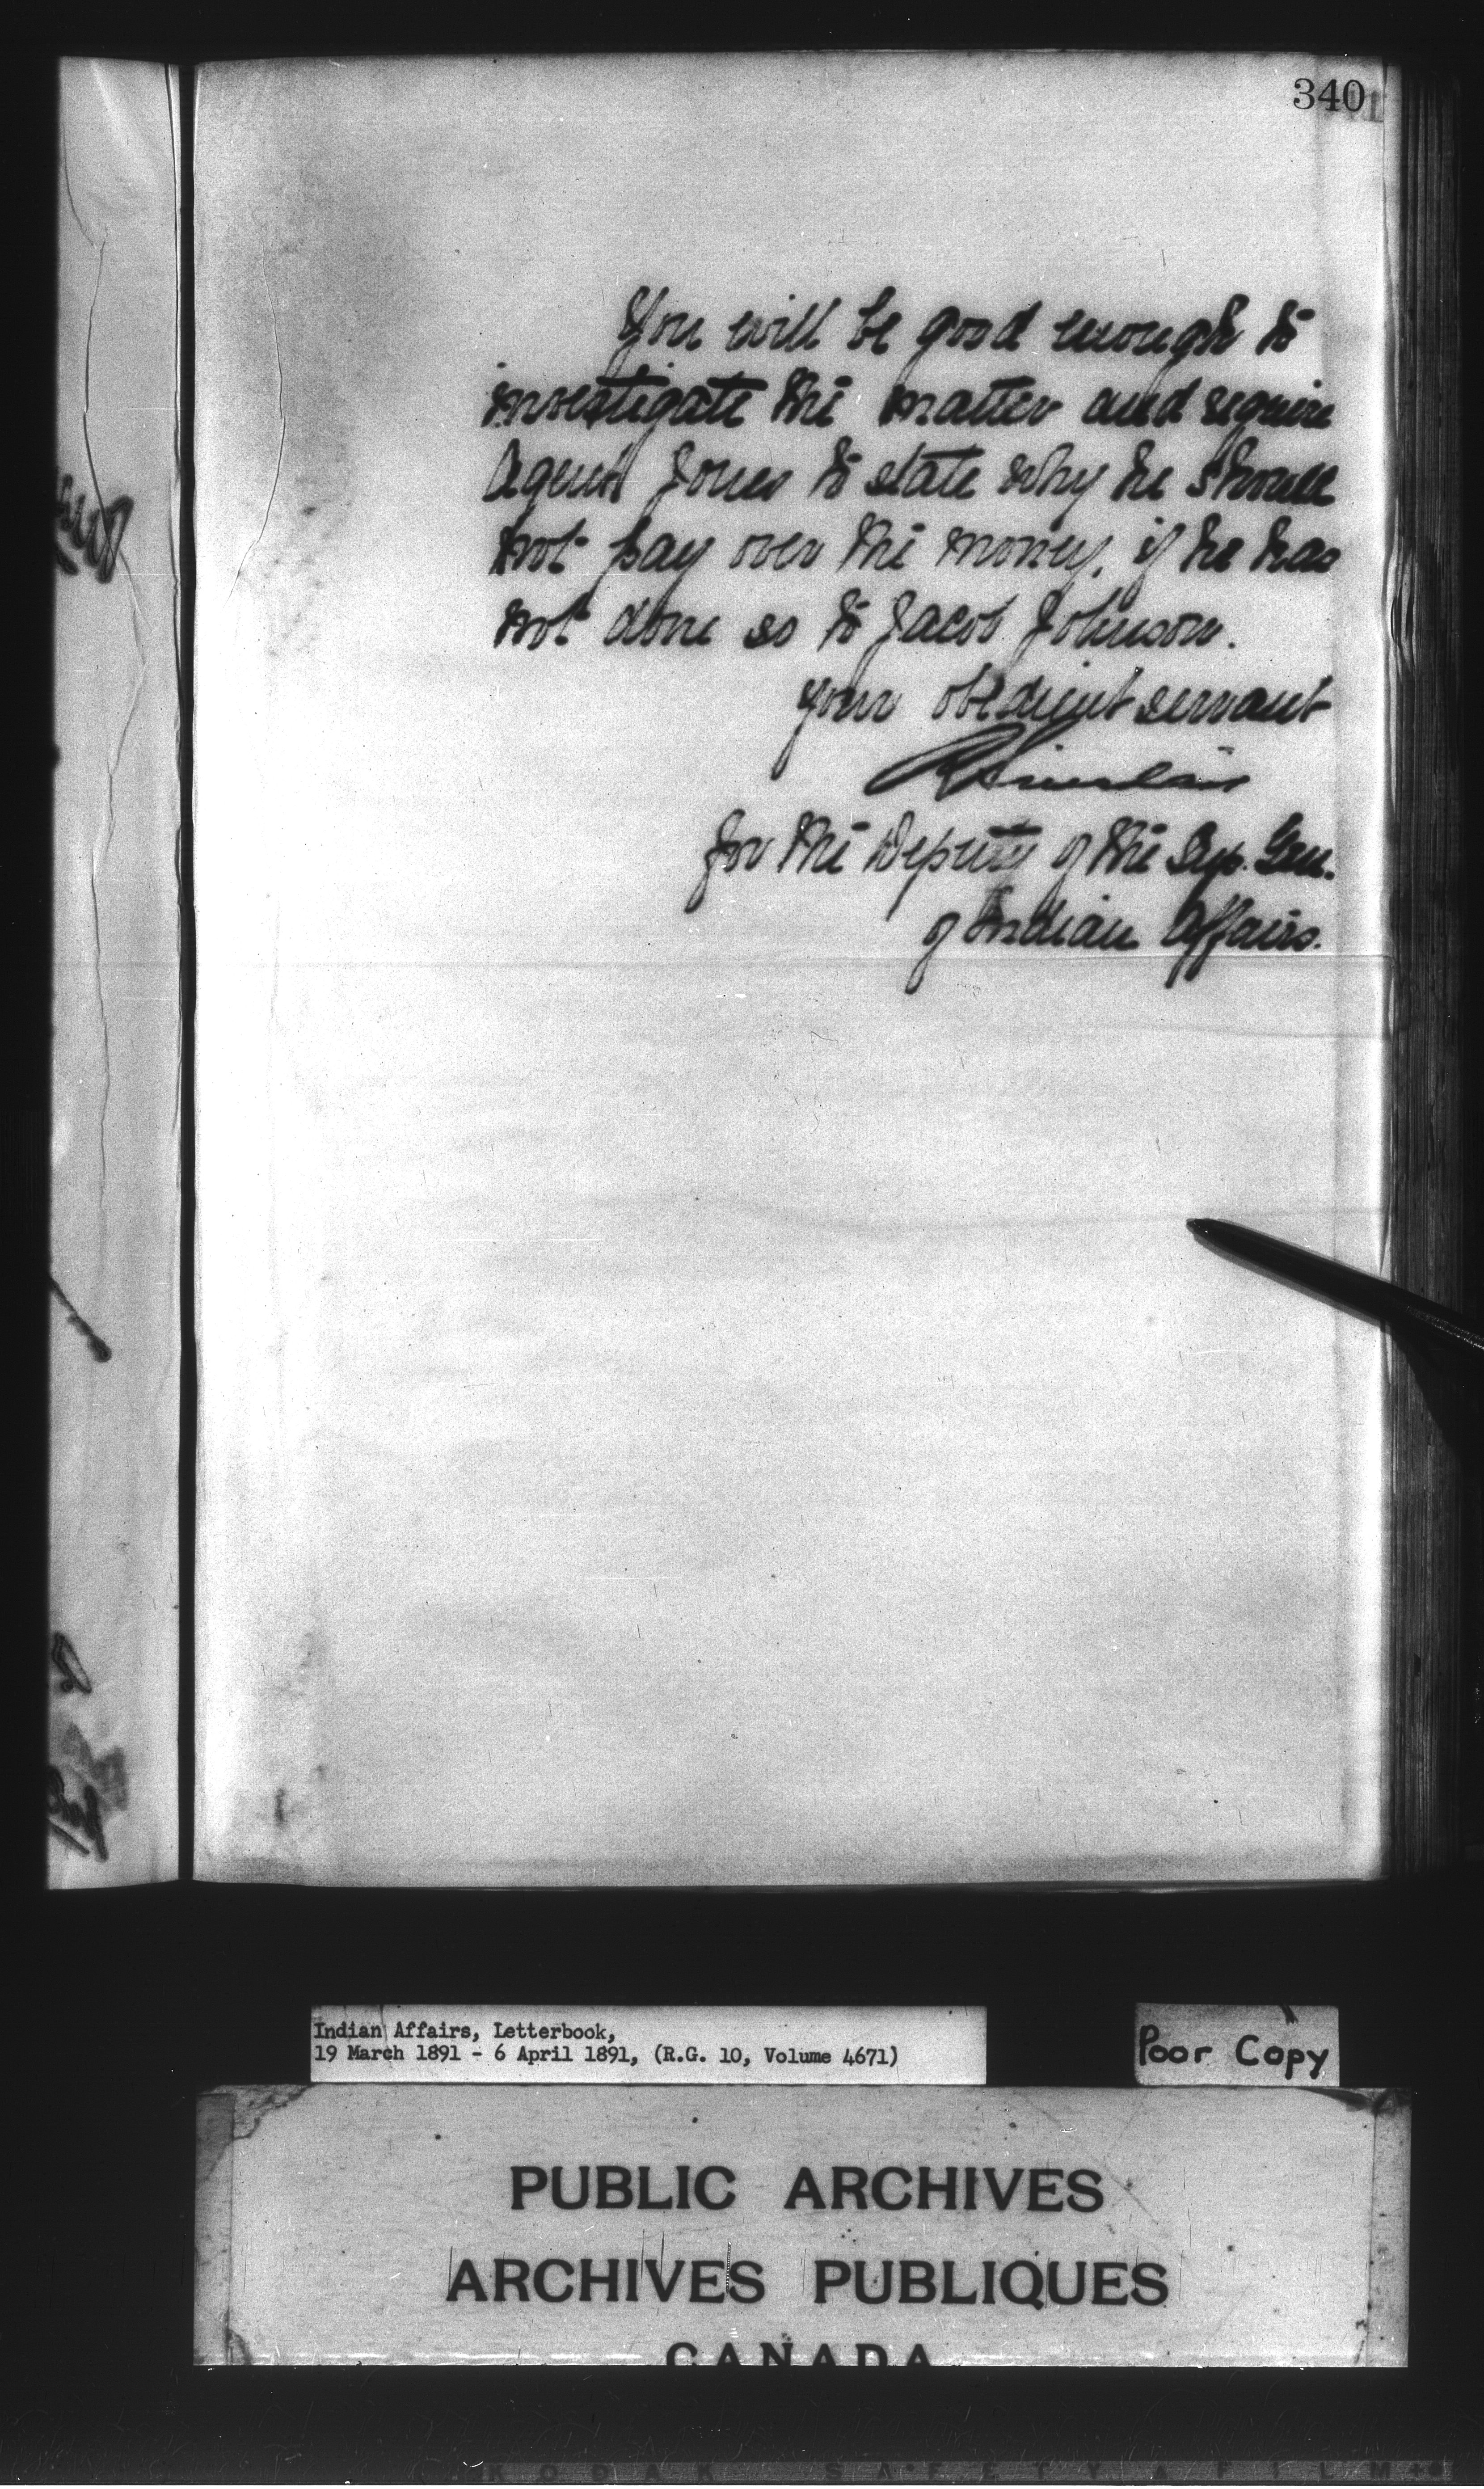 340
You will be good enough to
investigate the matter and require
Agent Jones to state why he should
not pay over the money, if he has
not done so to Jacob Johnson.
your obedient servant
R Sinclair
for the Deputy of the Sup. Gen.
of Indian Affairs.
Indian Affairs, Letterbook,
19 March 1891 - 6 April 1891, (R.G. 10, Volume 4671)
Poor Copy
PUBLIC ARCHIVES
ARCHIVES PUBLIQUES
CANADA
KODAK SAFETY FILM